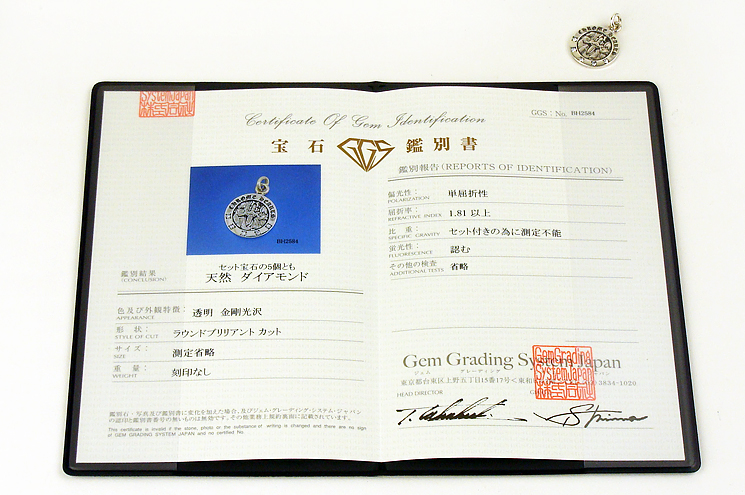 System Japan
Certificate Of Gem Identification
宝石 GGS 鑑別書
BH2584
鑑別結果
(CONCLUSION)
セット宝石の5個とも
天然 ダイアモンド
色及び外観特徴:
APPEARANCE
透明 金剛光沢
形 状:
STYLE OF CUT
ラウンドブリリアント カット
サイズ:
SIZE
測定省略
重 量:
WEIGHT
刻印なし
鑑別石・写真及び鑑別書に変化を加えた場合、及びジェム・グレーディング・システム・ジャパン
の認印と鑑別書番号の無いものは無効です。その他業務上規約裏面に記載されています。
This certificate is invalid if the stone, photo or the substance of writing is changed and there are no sign
of GEM GRADING SYSTEM JAPAN and no certified No.
GGS: No. BH2584
鑑別報告(REPORTS OF IDENTIFICATION)
偏光性:
POLARIZATION
単屈折性
屈折率:
REFRACTIVE INDEX
1.81 以上
比 重:
SPECIFIC GRAVITY
セット付きの為に測定不能
蛍光性:
FLUORESCENCE
認む
その他の検査
ADDITIONAL TESTS
省略
Gem Grading System Japan
ジェム グレーディング ジャパン
東京都台東区上野五丁目15番17号<東和 3834-1020
Gem Grading
System Japan
HEAD DIRECTOR